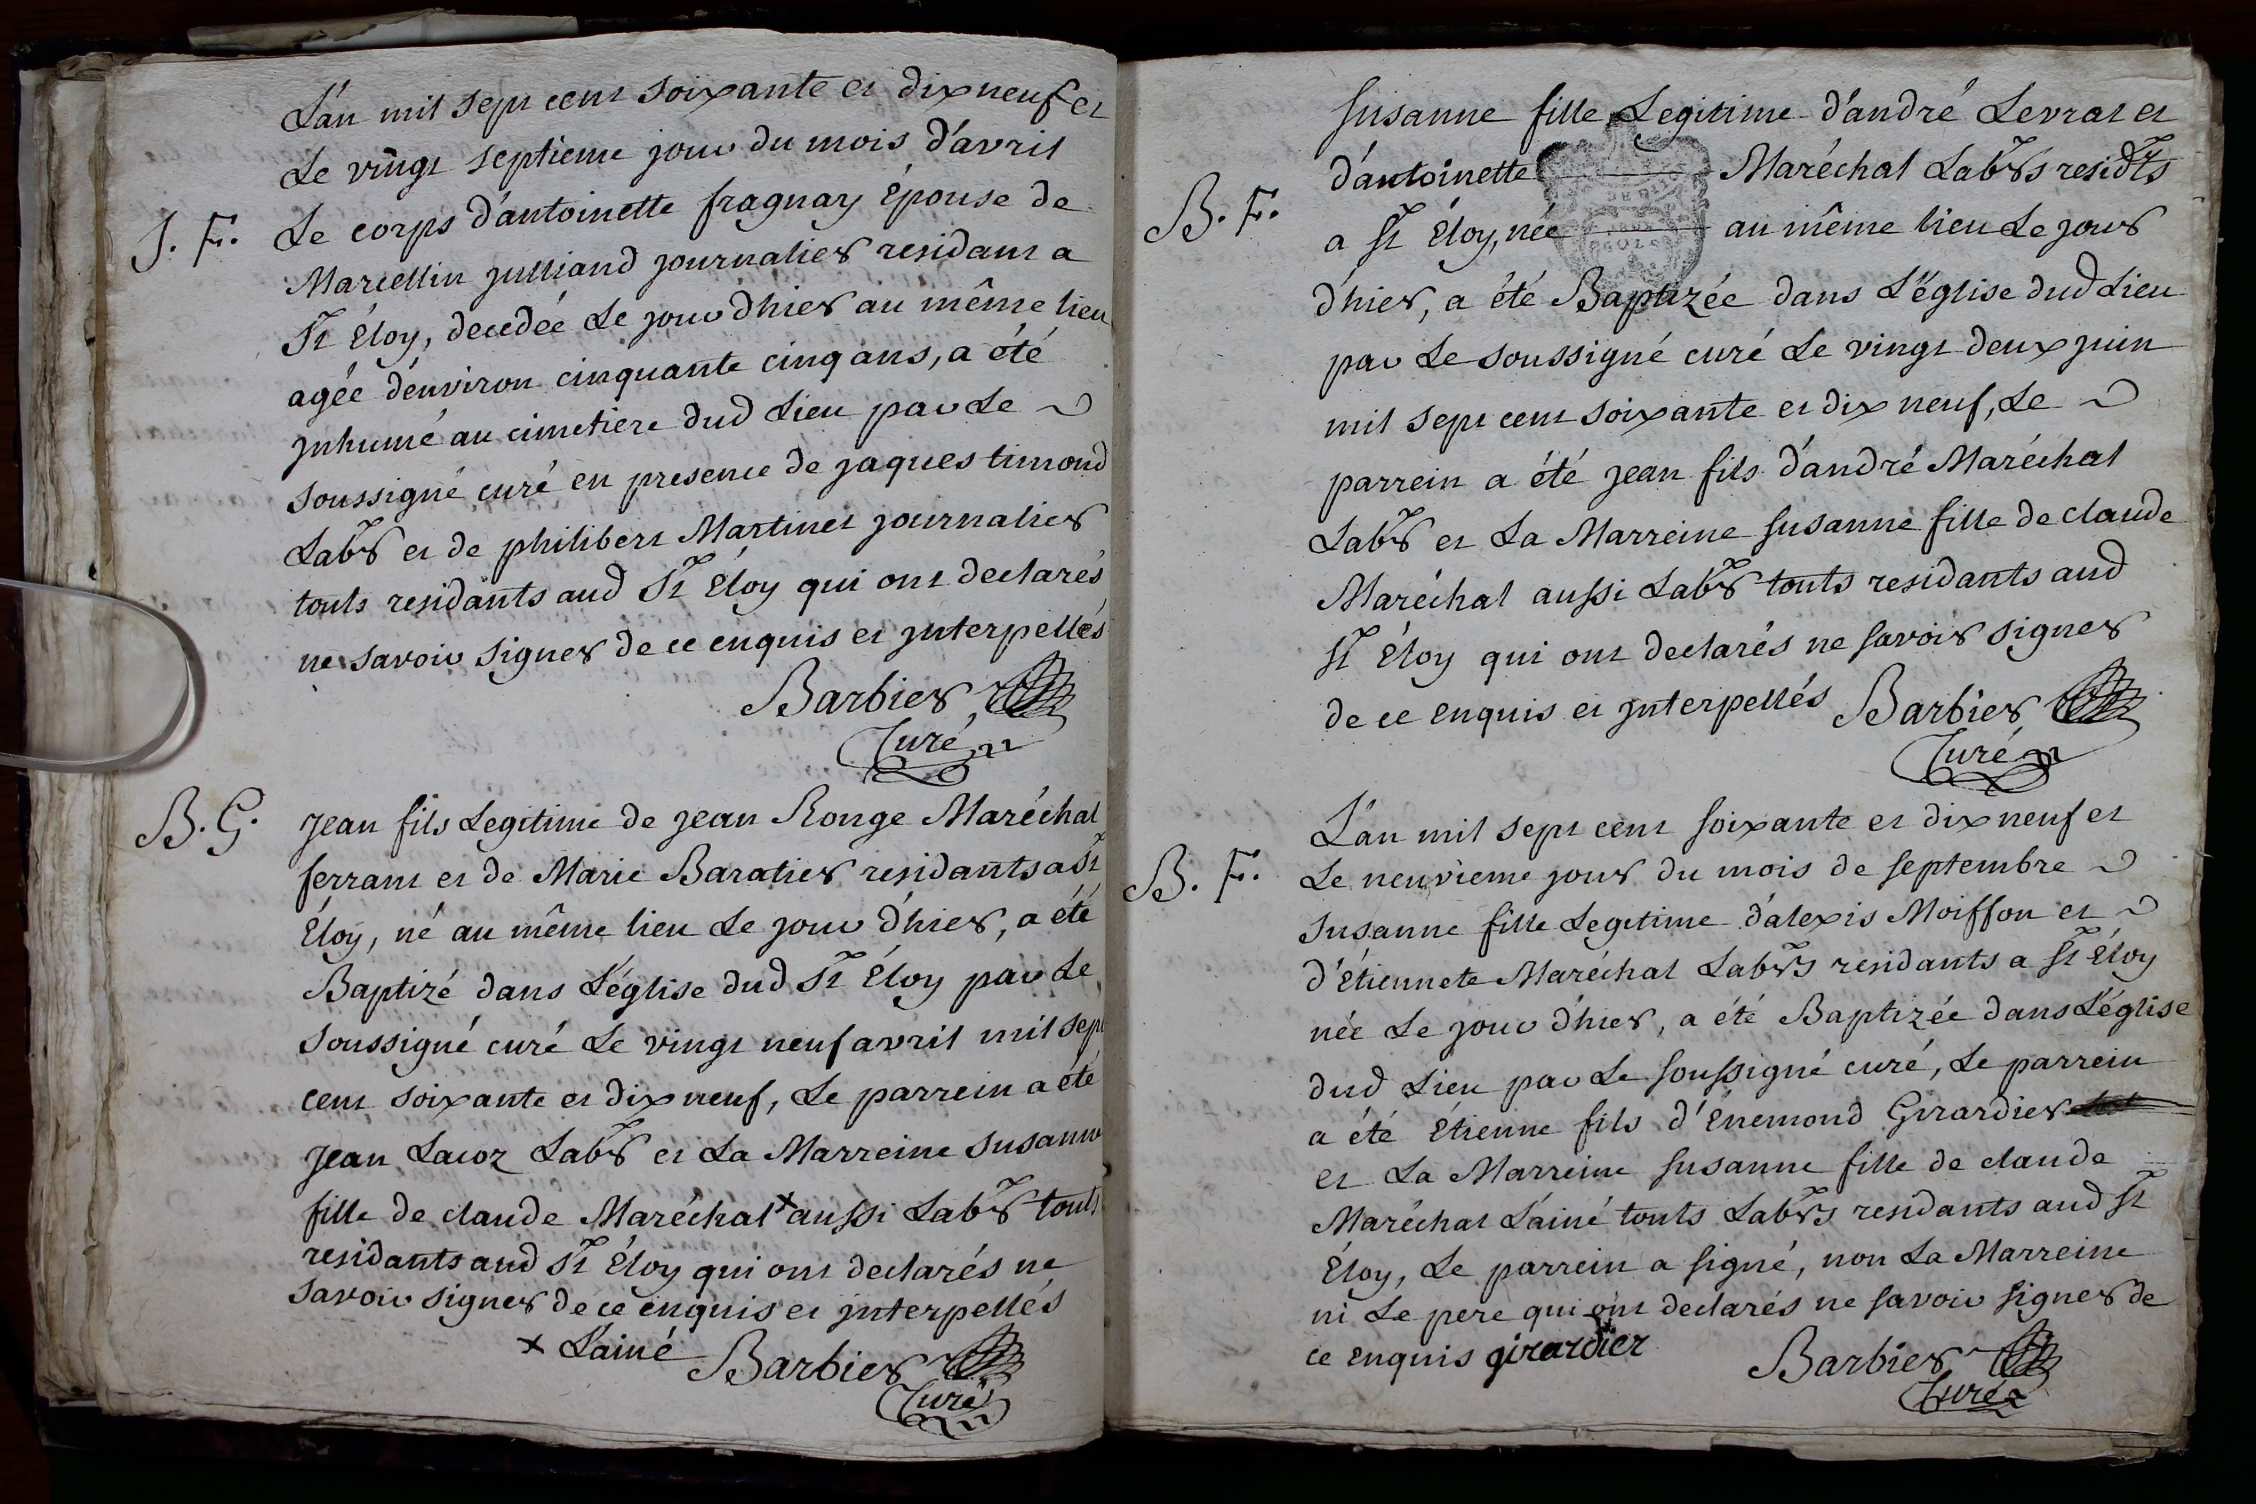 L'an mil sept cent soixante et dix neuf et
Le vingt septieme jour du mois d'avril
J. F.
Le corps d'antoinette fragnay Épouse de
Marcellin julliand journalier residant a
St Éloy, decedée Le jour d'hier au même lieu
agée d'environ cinquante cinq ans, a été
jnhumé au cimetiere dud Lieu par Le
soussigné curé en presence de jaques timond
Labr et de philibert Martinet journalier
touts residants aud St Éloy qui ont declarés
ne savoir signer de ce enquis et jnterpellés
Barbier
Curé
B. G.
jean fils Legitime de jean Ronge Maréchal
ferrant et de Marie Baratier residants a St
Éloy, né au même lieu Le jour d'hier, a été
Baptizé dans L'église dud St Éloy par Le
soussigné curé Le vingt neuf avril mil sept
cent soixante et dix neuf, Le parrein a été
jean Lacoz Labr et La Marreine susanne
fille de claude Maréchal x aussi Labr touts
residants aud St Éloy qui ont declarés ne
savoir signer de ce enquis et jnterpellés
x L'ainé
Barbier
Curé
susanne fille Legitime d'andré Levrat et
d'antoinette Maréchal Labrs residts
B. F.
a St Éloy, née au même lieu Le jour
d'hier, a été Baptizée dans L'église dud Lieu
par Le soussigné curé Le vingt deux juin
mil sept cent soixante et dix neuf, Le
parrein a été jean fils d'andré Maréchal
Labr et La Marreine susanne fille de claude
Maréchal aussi Labr touts residants aud
St Éloy qui ont declarés ne savoir signer
de ce enquis et jnterpellés Barbier
Curé
L'an mil sept cent soixante et dix neuf et
B. F.
Le neuvieme jour du mois de septembre
susanne fille Legitime d'alexis Moisson et
d'Étiennete Maréchal Labrs residants a St Éloy
née Le jour d'hier, a été Baptizée dans L'église
dud Lieu par Le soussigné curé, Le parrein
a été Étienne fils d'Énemond Girardier
et La Marreine susanne fille de claude
Maréchal L'ainé touts Labrs residants aud St
Éloy, Le parrein a signé, non La Marreine
ni Le pere qui ont declarés ne savoir signer de
ce enquis girardier
Barbier
Curé